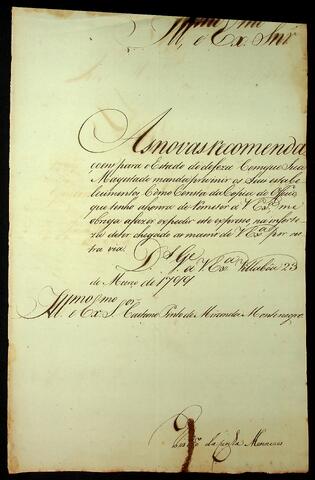 Illmo e Exmo Snr
As novas recomenda
coens para o Estado de defeza Com que Sua
Magestade manda premunir os seus estabe
lecimentos, Como Consta da Copia do Officio
que tenho a honra de Remeter a V Exa me
obriga a fazer expedir este expreso na incerte
za de ter chegado as maons de V Exa por ou
tra via.
Ds Ge a V Exa Villa boa 23
de Março de 1799
Illmo e Exmo Sr Caetano Pinto de Miranda Montenegro
da Cunha Menezes